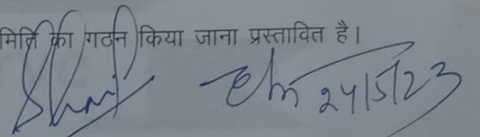 मिति का गठन किया जाना प्रस्तावित है।
24/5/23